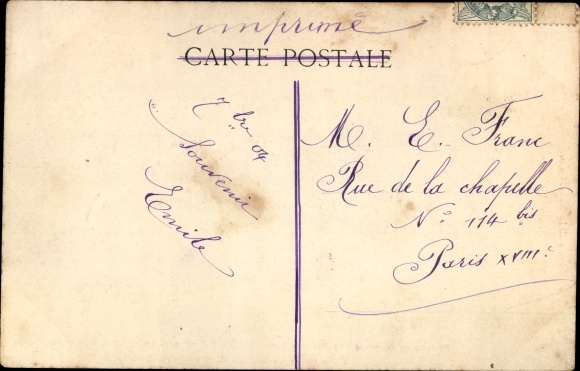 imprimé
CARTE POSTALE
7bre 04
Souvenir
Emile
M. E. Franc
Rue de la chapelle
N° 114 bis
Paris XVIIIe